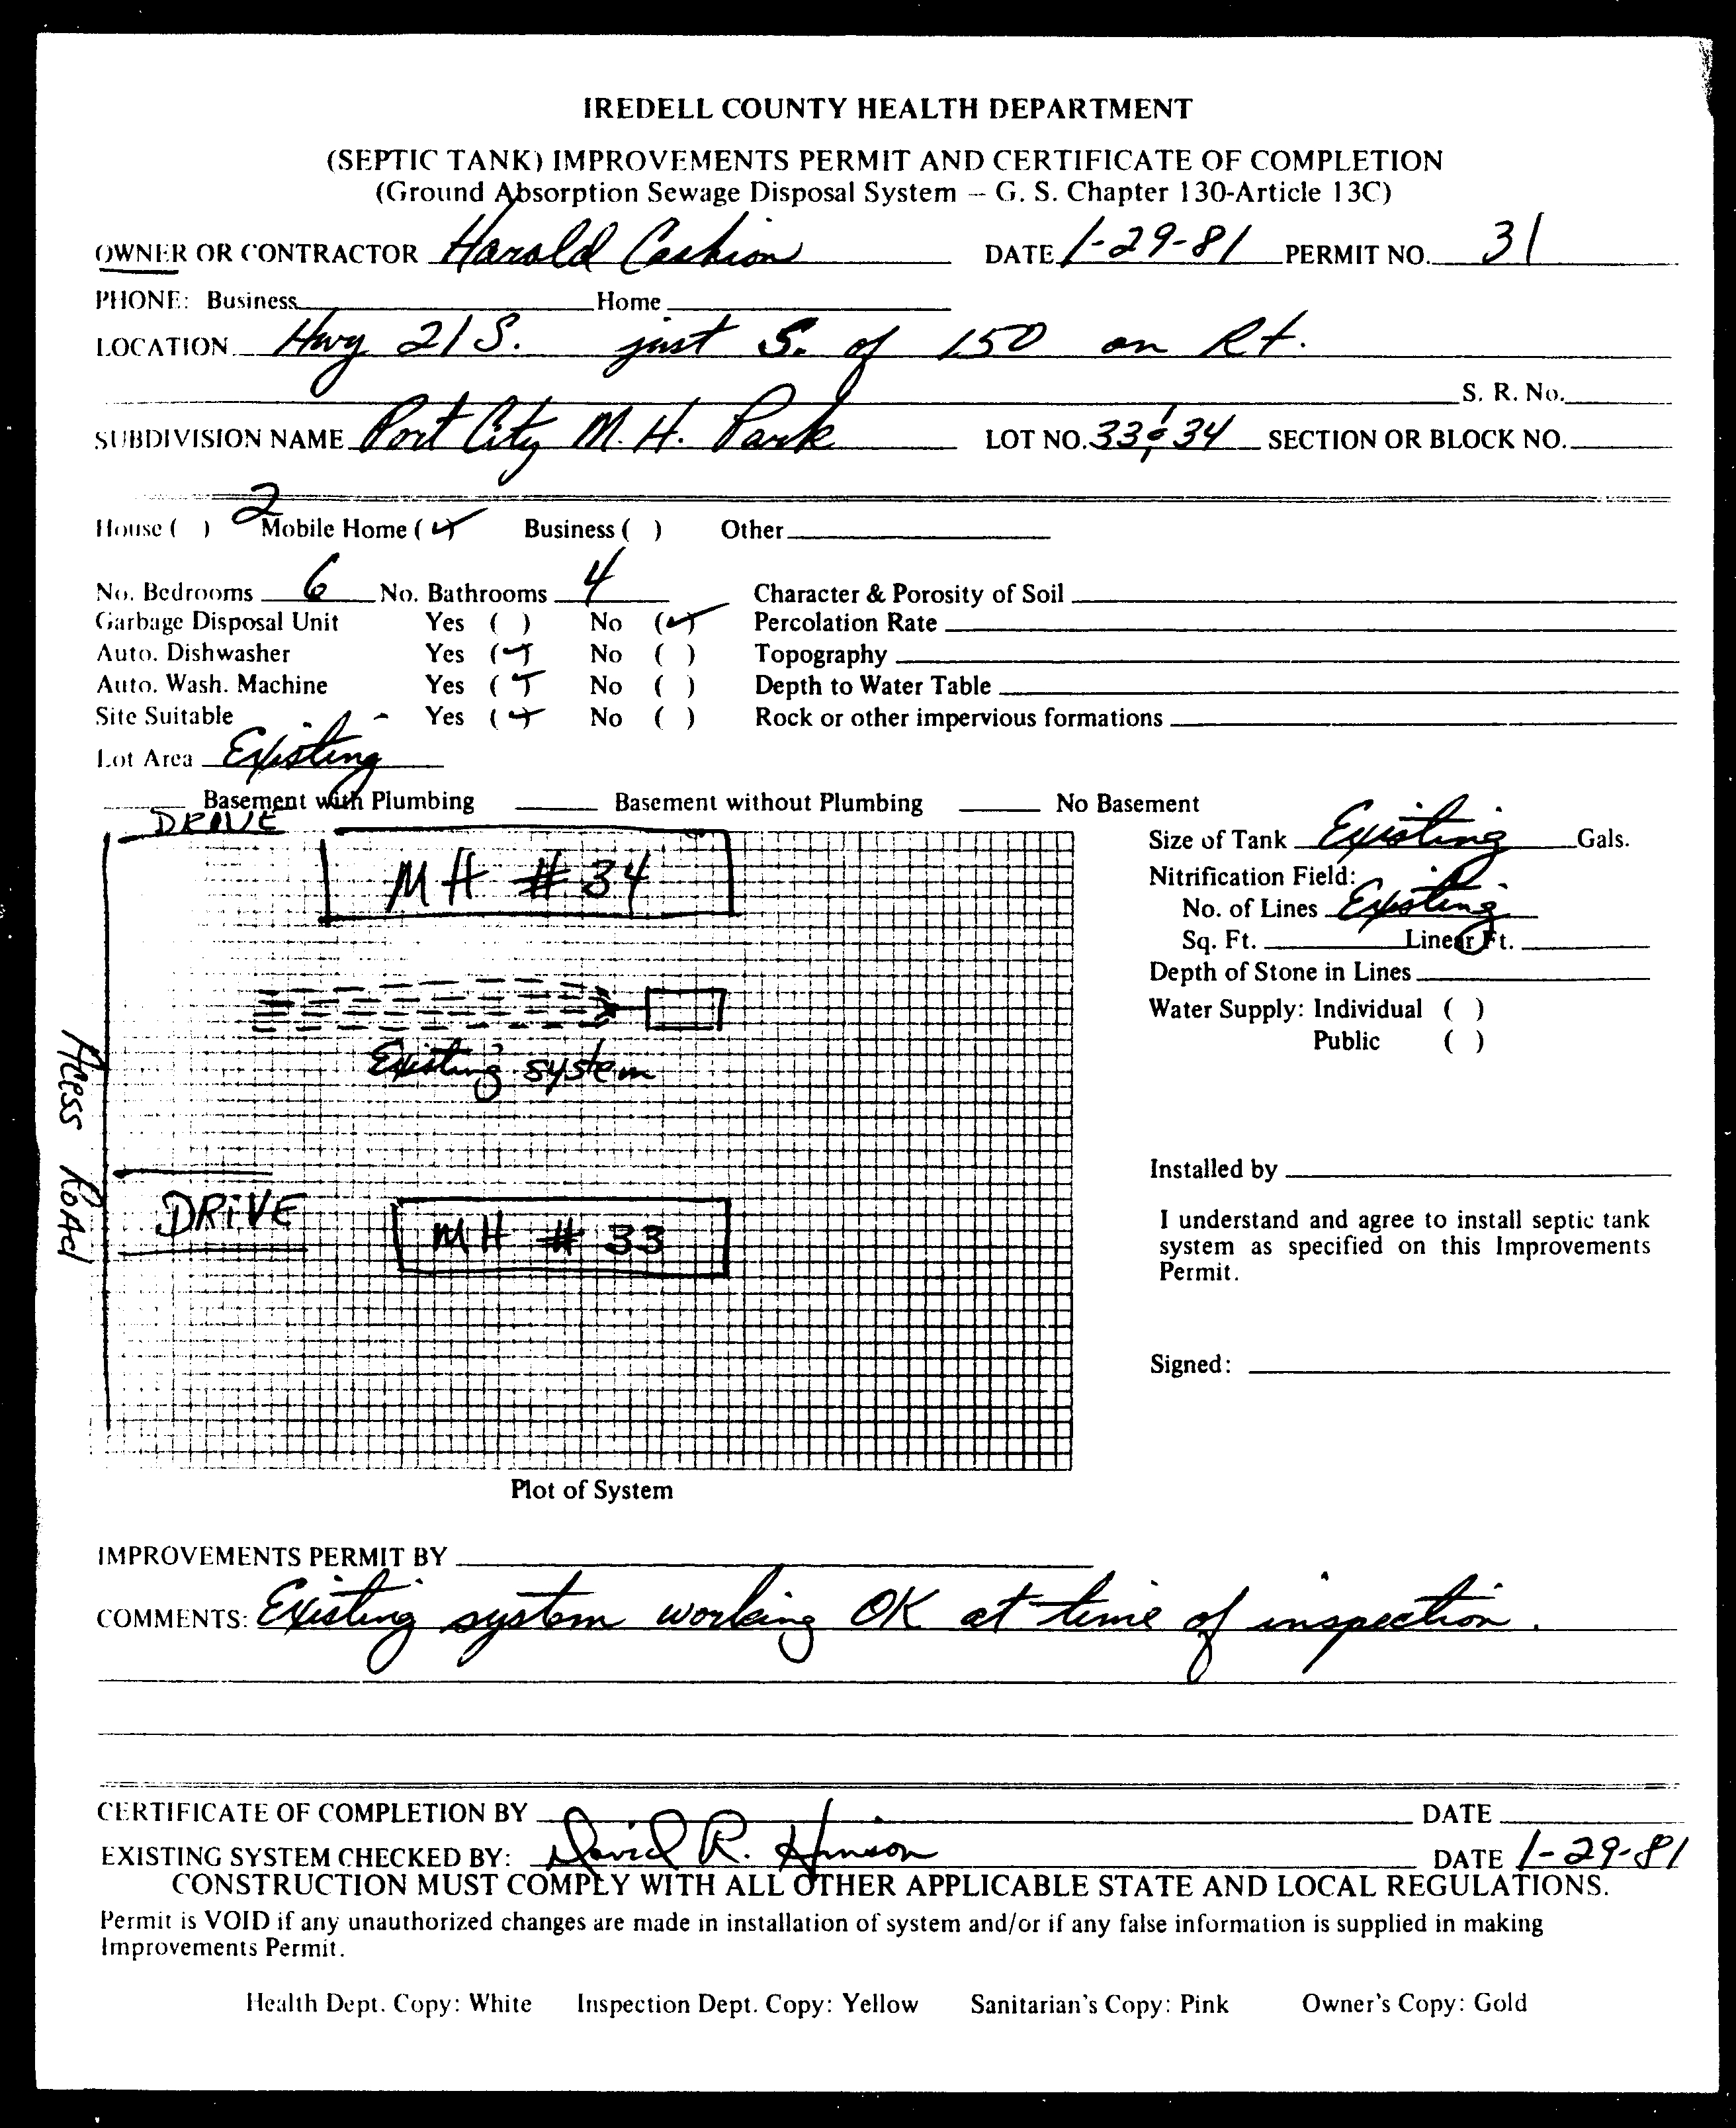 IREDELL COUNTY HEALTH DEPARTMENT
(SEPTIC TANK) IMPROVEMENTS PERMIT AND CERTIFICATE OF COMPLETION
(Ground Absorption Sewage Disposal System — G. S. Chapter 130-Article 13C)
OWNER OR CONTRACTOR Harold Cashion DATE 1-29-81 PERMIT NO. 31
PHONE: Business Home
LOCATION Hwy 21 S. just S. of 150 on Rt.
S. R. No.
SUBDIVISION NAME Port City M. H. Park LOT NO. 33 & 34 SECTION OR BLOCK NO.
House ( ) 2 Mobile Home (✓) Business ( ) Other
No. Bedrooms 6 No. Bathrooms 4 Character & Porosity of Soil
Garbage Disposal Unit Yes ( ) No (✓) Percolation Rate
Auto. Dishwasher Yes (✓) No ( ) Topography
Auto. Wash. Machine Yes (✓) No ( ) Depth to Water Table
Site Suitable Yes (✓) No ( ) Rock or other impervious formations
Lot Area Existing
Basement with Plumbing Basement without Plumbing No Basement
DRIVE
MH # 34
Existing system
Acess Road
DRIVE
MH # 33
Plot of System
Size of Tank Existing Gals.
Nitrification Field:
No. of Lines Existing
Sq. Ft. Linear Ft.
Depth of Stone in Lines
Water Supply: Individual ( )
Public ( )
Installed by
I understand and agree to install septic tank
system as specified on this Improvements
Permit.
Signed:
IMPROVEMENTS PERMIT BY
COMMENTS: Existing system working OK at time of inspection.
CERTIFICATE OF COMPLETION BY DATE
EXISTING SYSTEM CHECKED BY: David R. Hinson DATE 1-29-81
CONSTRUCTION MUST COMPLY WITH ALL OTHER APPLICABLE STATE AND LOCAL REGULATIONS.
Permit is VOID if any unauthorized changes are made in installation of system and/or if any false information is supplied in making
Improvements Permit.
Health Dept. Copy: White Inspection Dept. Copy: Yellow Sanitarian's Copy: Pink Owner's Copy: Gold